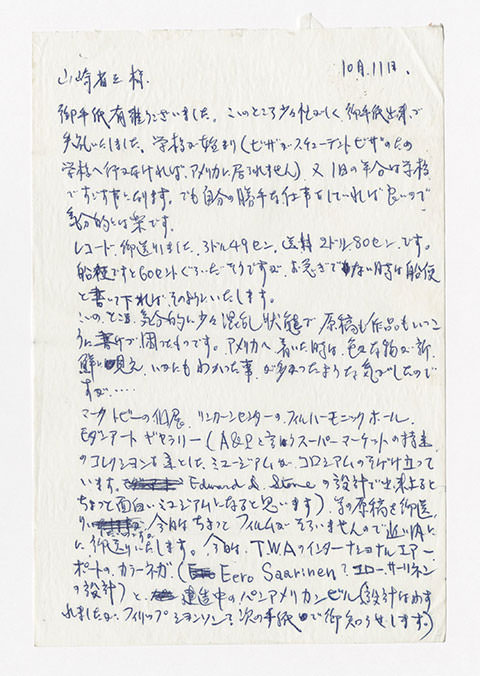 山崎省三様 10月11日.
御手紙有難うございました。このところ少々忙しく御手紙出来で
失礼いたしました。学校が始まり(ビザがスチューデントビザのため
学校へ行かなければ、アメリカに居られません)又1日の半分は学校
ですごす事になります。でも自分の勝手な仕事をしていれば良いので
気分的には楽です。
レコード御送りしました。3ドル49セント。送料2ドル80セントです。
船便ですと60セントぐらいだそうですが、お急ぎでない時は船便
と書いて下さればそのようにいたします。
このところ気分的に少々混乱状態で原稿も作品もいっこ
うに 困ったものです。アメリカへ着いた時は、色々な物が新
鮮に見え、いかにもわかった事が多かったような気がしたので
すが.....
マーク・トビーの個展、リンカーンセンターのフィルハーモニックホール.
モダンアートギャラリー(A&Pと言うスーパーマーケットの
のコレクションを主としたミュージアムが、コロシアムのそばに立って
います。Edward D. Stoneの設計で出来上ると
ちょっと面白いミュージアムになると思います)等の原稿を御送
り 今日はちょっとフィルムがそろいませんので近い内に
に御送りいたします。今日は、TWAのインターナショナルエアー
ポートのカラーネガ(Eero Saarinen?エロー・サーリネン
の設計)と、建造中のパンアメリカンビル(設計はわす
れましたが、フィリップジョンソン?次の手紙で御知らせします。)